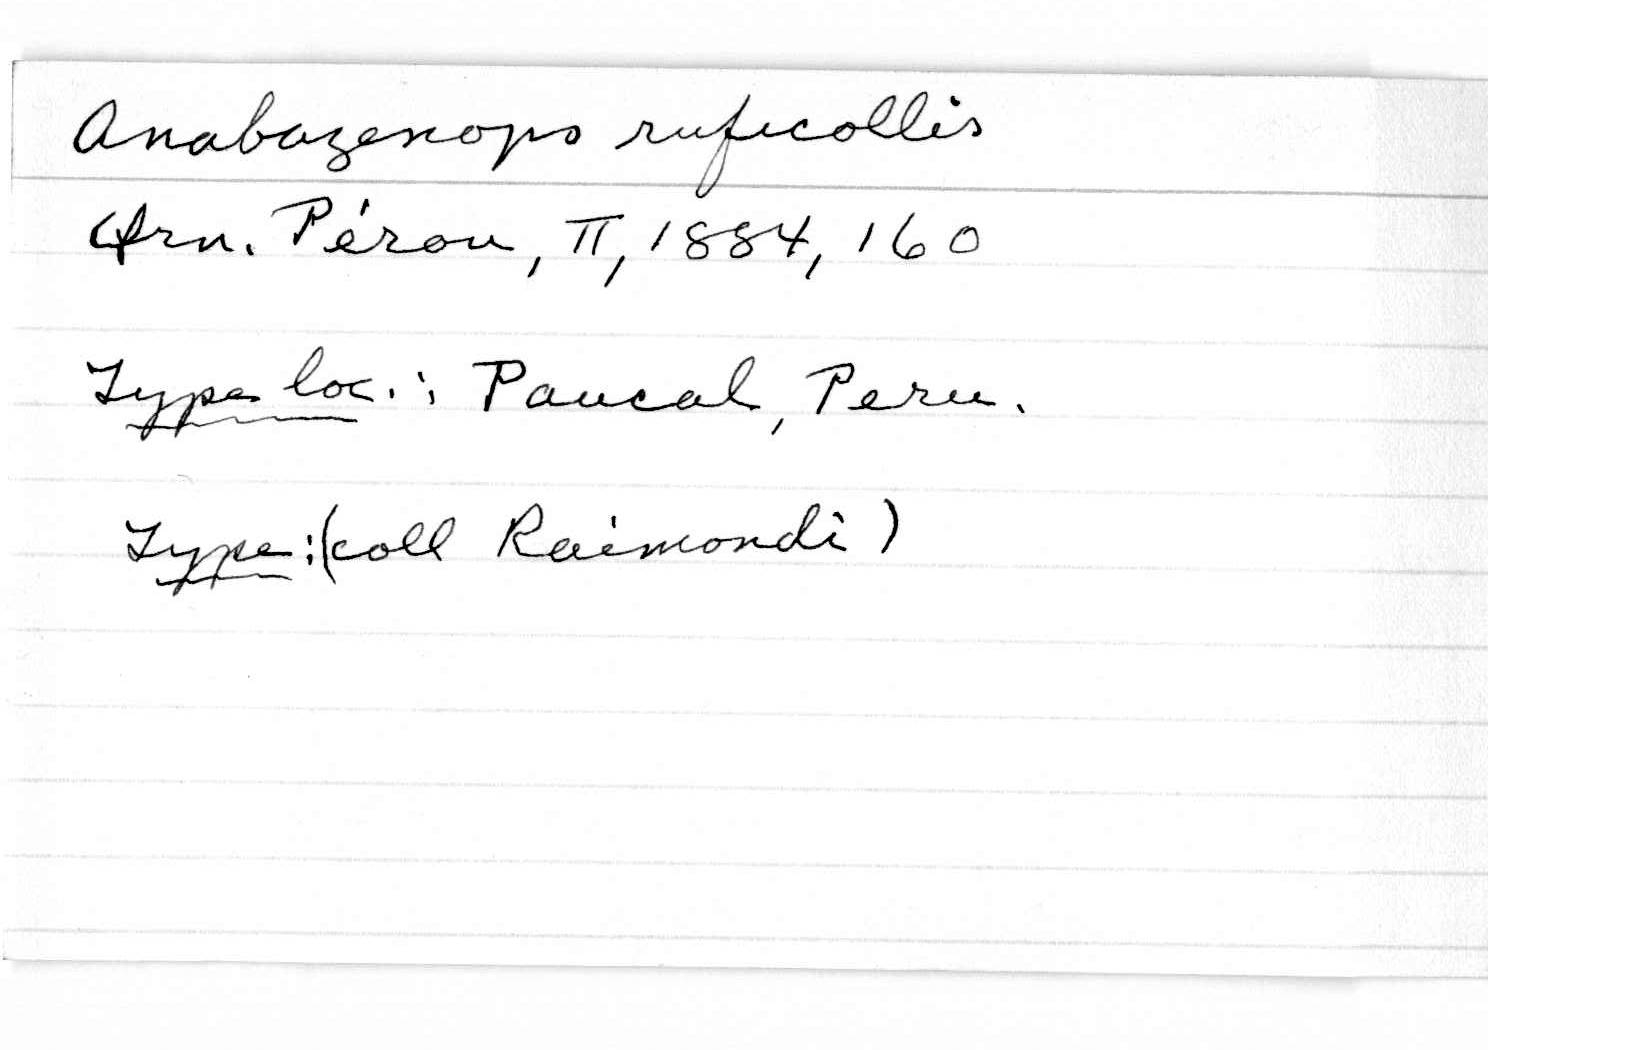 Anabazenops ruficollis
Orn. Pérou, II, 1884, 160
Type loc.: Paucal, Peru.
Type: (coll Raimondi)